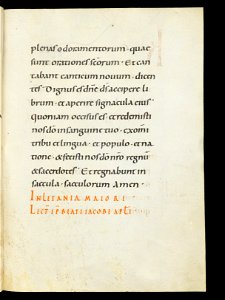 plenas odoramentorum · quae
sunt orationes scorum · Et can
tabant canticum nouum · dicen
tes · Dignus es dne ds accipere li
brum · et aperire signacula eius ·
quoniam occisus es · et redemisti
nos do in sanguine tuo · ex omi
tribu et lingua · et populo · et na
tione · et fecisti nos do nro regnu
et sacerdotes · Et regnabunt in
saecula · saeculorum Amen ·
IN LETANIA MAIORI
LECT EPI BEATI IACOBI APLI